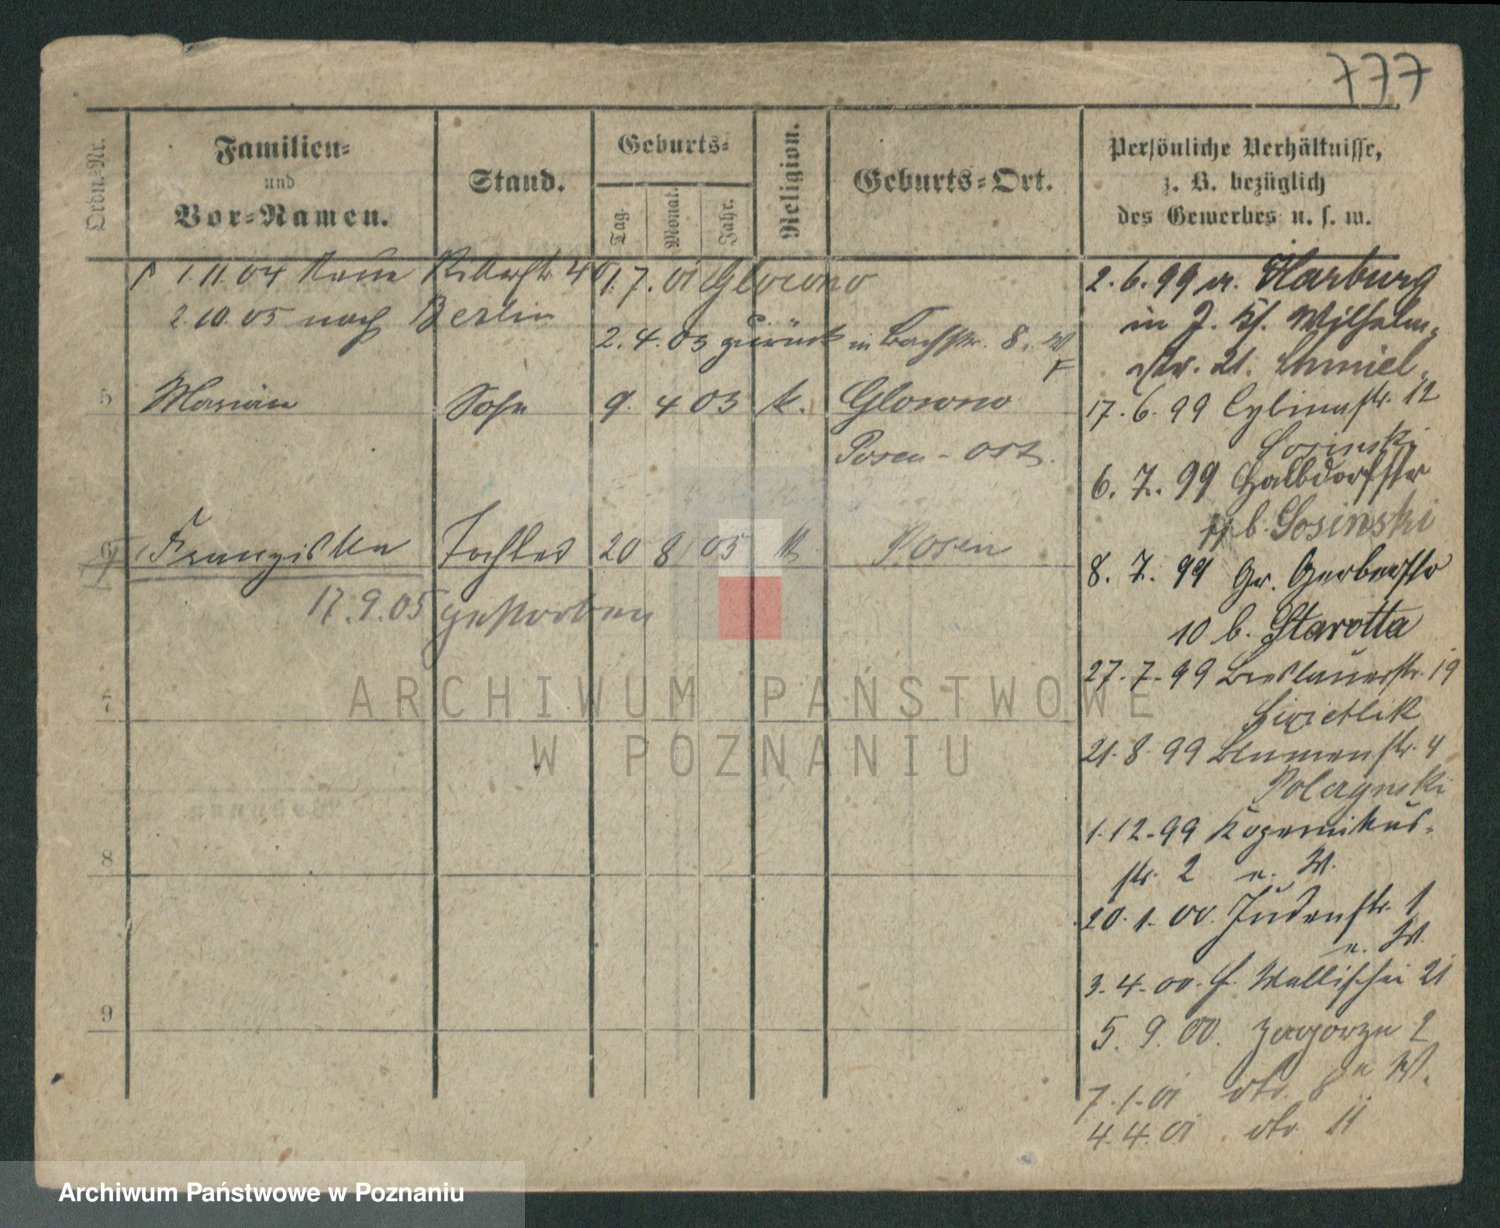 777
Ordn.-Nr.
Familien-
und
Vor-Namen.
Stand.
Geburts-
Tag.
Monat.
Jahr.
Religion.
Geburts-Ort.
Persönliche Verhältnisse,
z. B. bezüglich
des Gewerbes u. s. w.
1.11.04 Neue Ritterstr 40
1.7.01 Glowno
2.10.05 nach Berlin
2.4.03 zurück in Bachstr. 8.
5 Marian Sohn 9. 4 03 k. Glowno
Posen-Ost.
6 Franziska Tochter 20 8 05 k Posen
17.9.05 gestorben
7
8
9
2.6.99 a. Harburg
in J. Kf. Wilhelm-
str. 21. Chmiel.
17.6.99 Cybinastr. 12
Sosinski
6.7.99 Halbdorfstr
b. Sosinski
8.7.99 Gr. Gerberstr
10 b. Starotta
27.7.99 Breslauerstr. 19
Swietlik
21.8.99 Blumenstr. 4
Polczynski
1.12.99 Kopernikus-
str. 2 n. W.
20.1.00. Judenstr. 1
n. W.
3.4.00. Wallischei 21
5.9.00. Zagorze 2
7.1.01 dto. 8 n W.
4.4.01 dto 11
ARCHIWUM PAŃSTWOWE
W POZNANIU
Archiwum Państwowe w Poznaniu